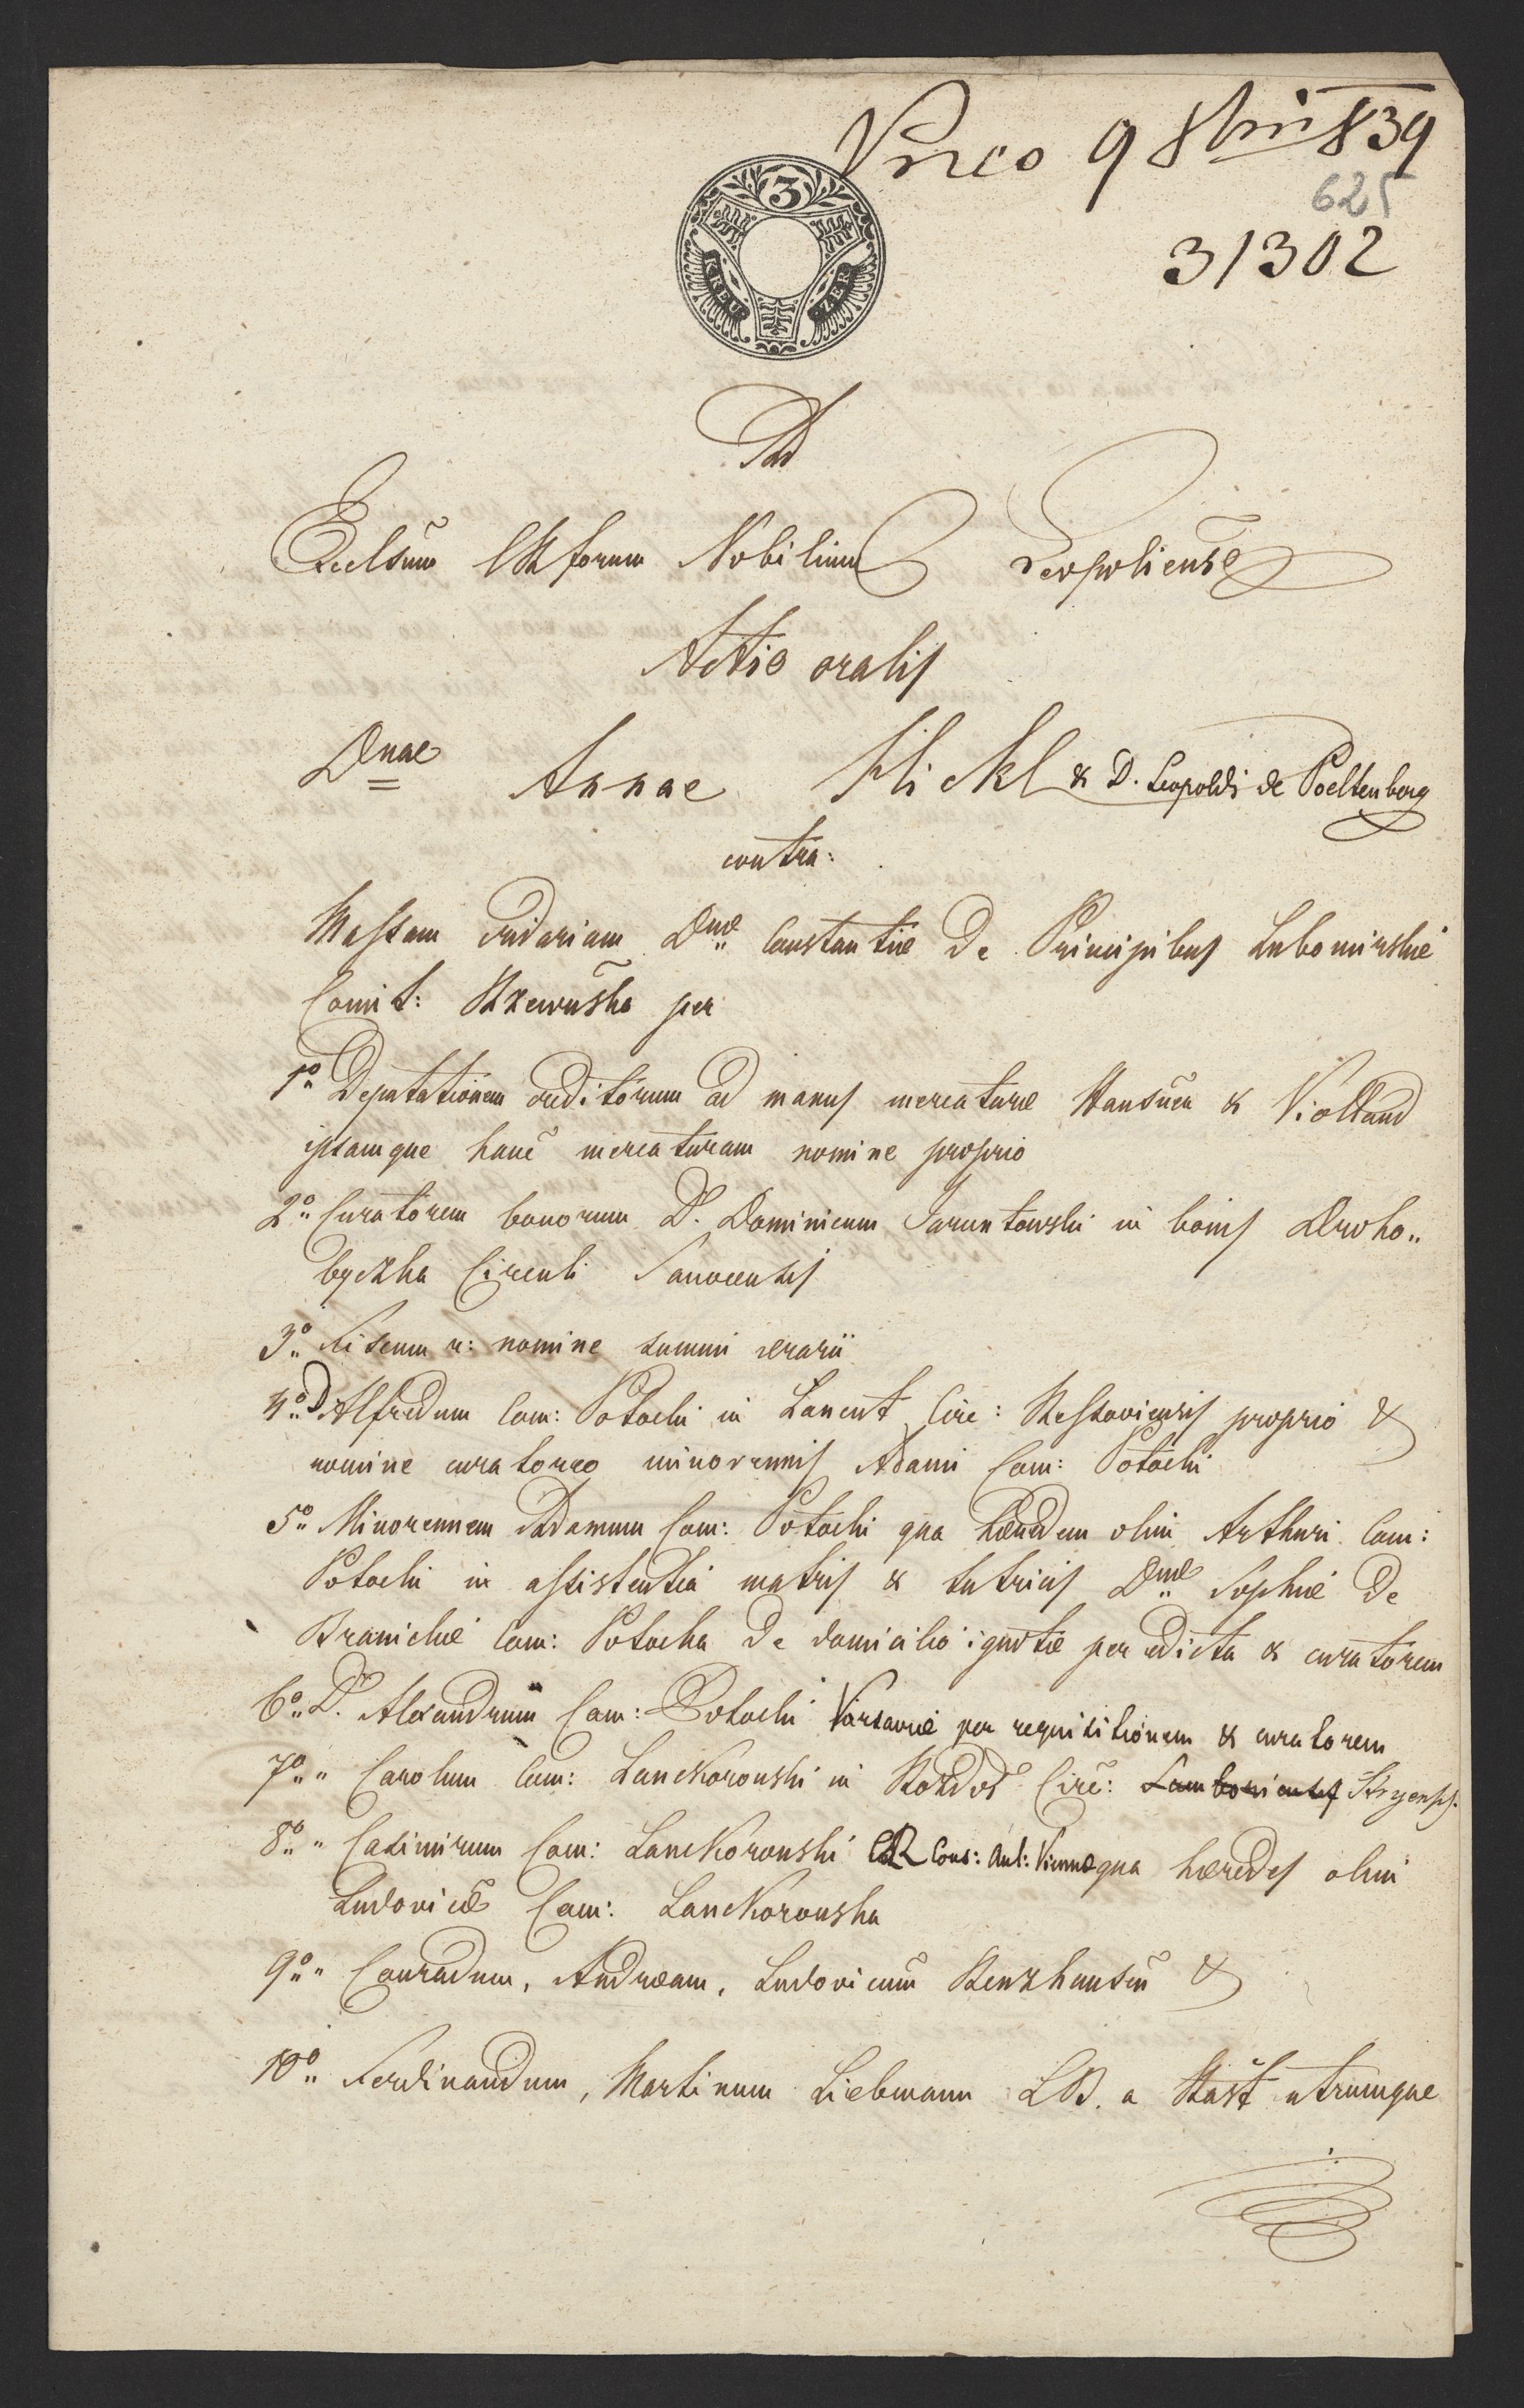 9 8bris 839
625
31302
3
KREU ZER
Ad
Excelsum CR forum Nobilium Leopoliense
Actio oralis
Dnae Annae Flickl & D. Leopoldi de Poeltenberg
contra:
Massam cridariam Dnae Constantiæ De Principibus Lubomirskie
Comit: Rzewuska per
1o Deputationem creditorum ad manus mercaturæ Hausner & Violland
ipsamque hanc mercaturam nomine proprio
2o Curatorem bonorum D. Dominicum Jaruntowski in bonis Droho„
byczka Circuli Sanocensis
3o Fiscum r: nomine summi aerarii
4o D Alfredum Com: Potocki in Lancut Circ: Ressoviensis proprio &
nomine curatorio minorennis Adami Com: Potocki
5o Minorennem Adamum Com: Potocki qua hæredem olim Arthuri Com:
Potocki in assistentia matris & tutricis Dnæ Sophiæ De
Branickie Com: Potocka De domicilio ignotæ per edicta & curatorem
6o D. Alexandrum Com: Potocki Varsaviæ per requisitionem & curatorem
7o „ Carolum Com: Lanckoronski in Rozdoł Circ: Samboriensis Stryensis.
8o „ Casimirum Com: Lanckoronski CR Cons: Aul: Viennæ qua hæredes olim
Ludovicæ Com: Lanckoronska
9o „ Conradum, Andræam, Ludovicum Renzhausen &
10o Ferdinandum, Martinum Liebmann L.B. a Rast utrumque